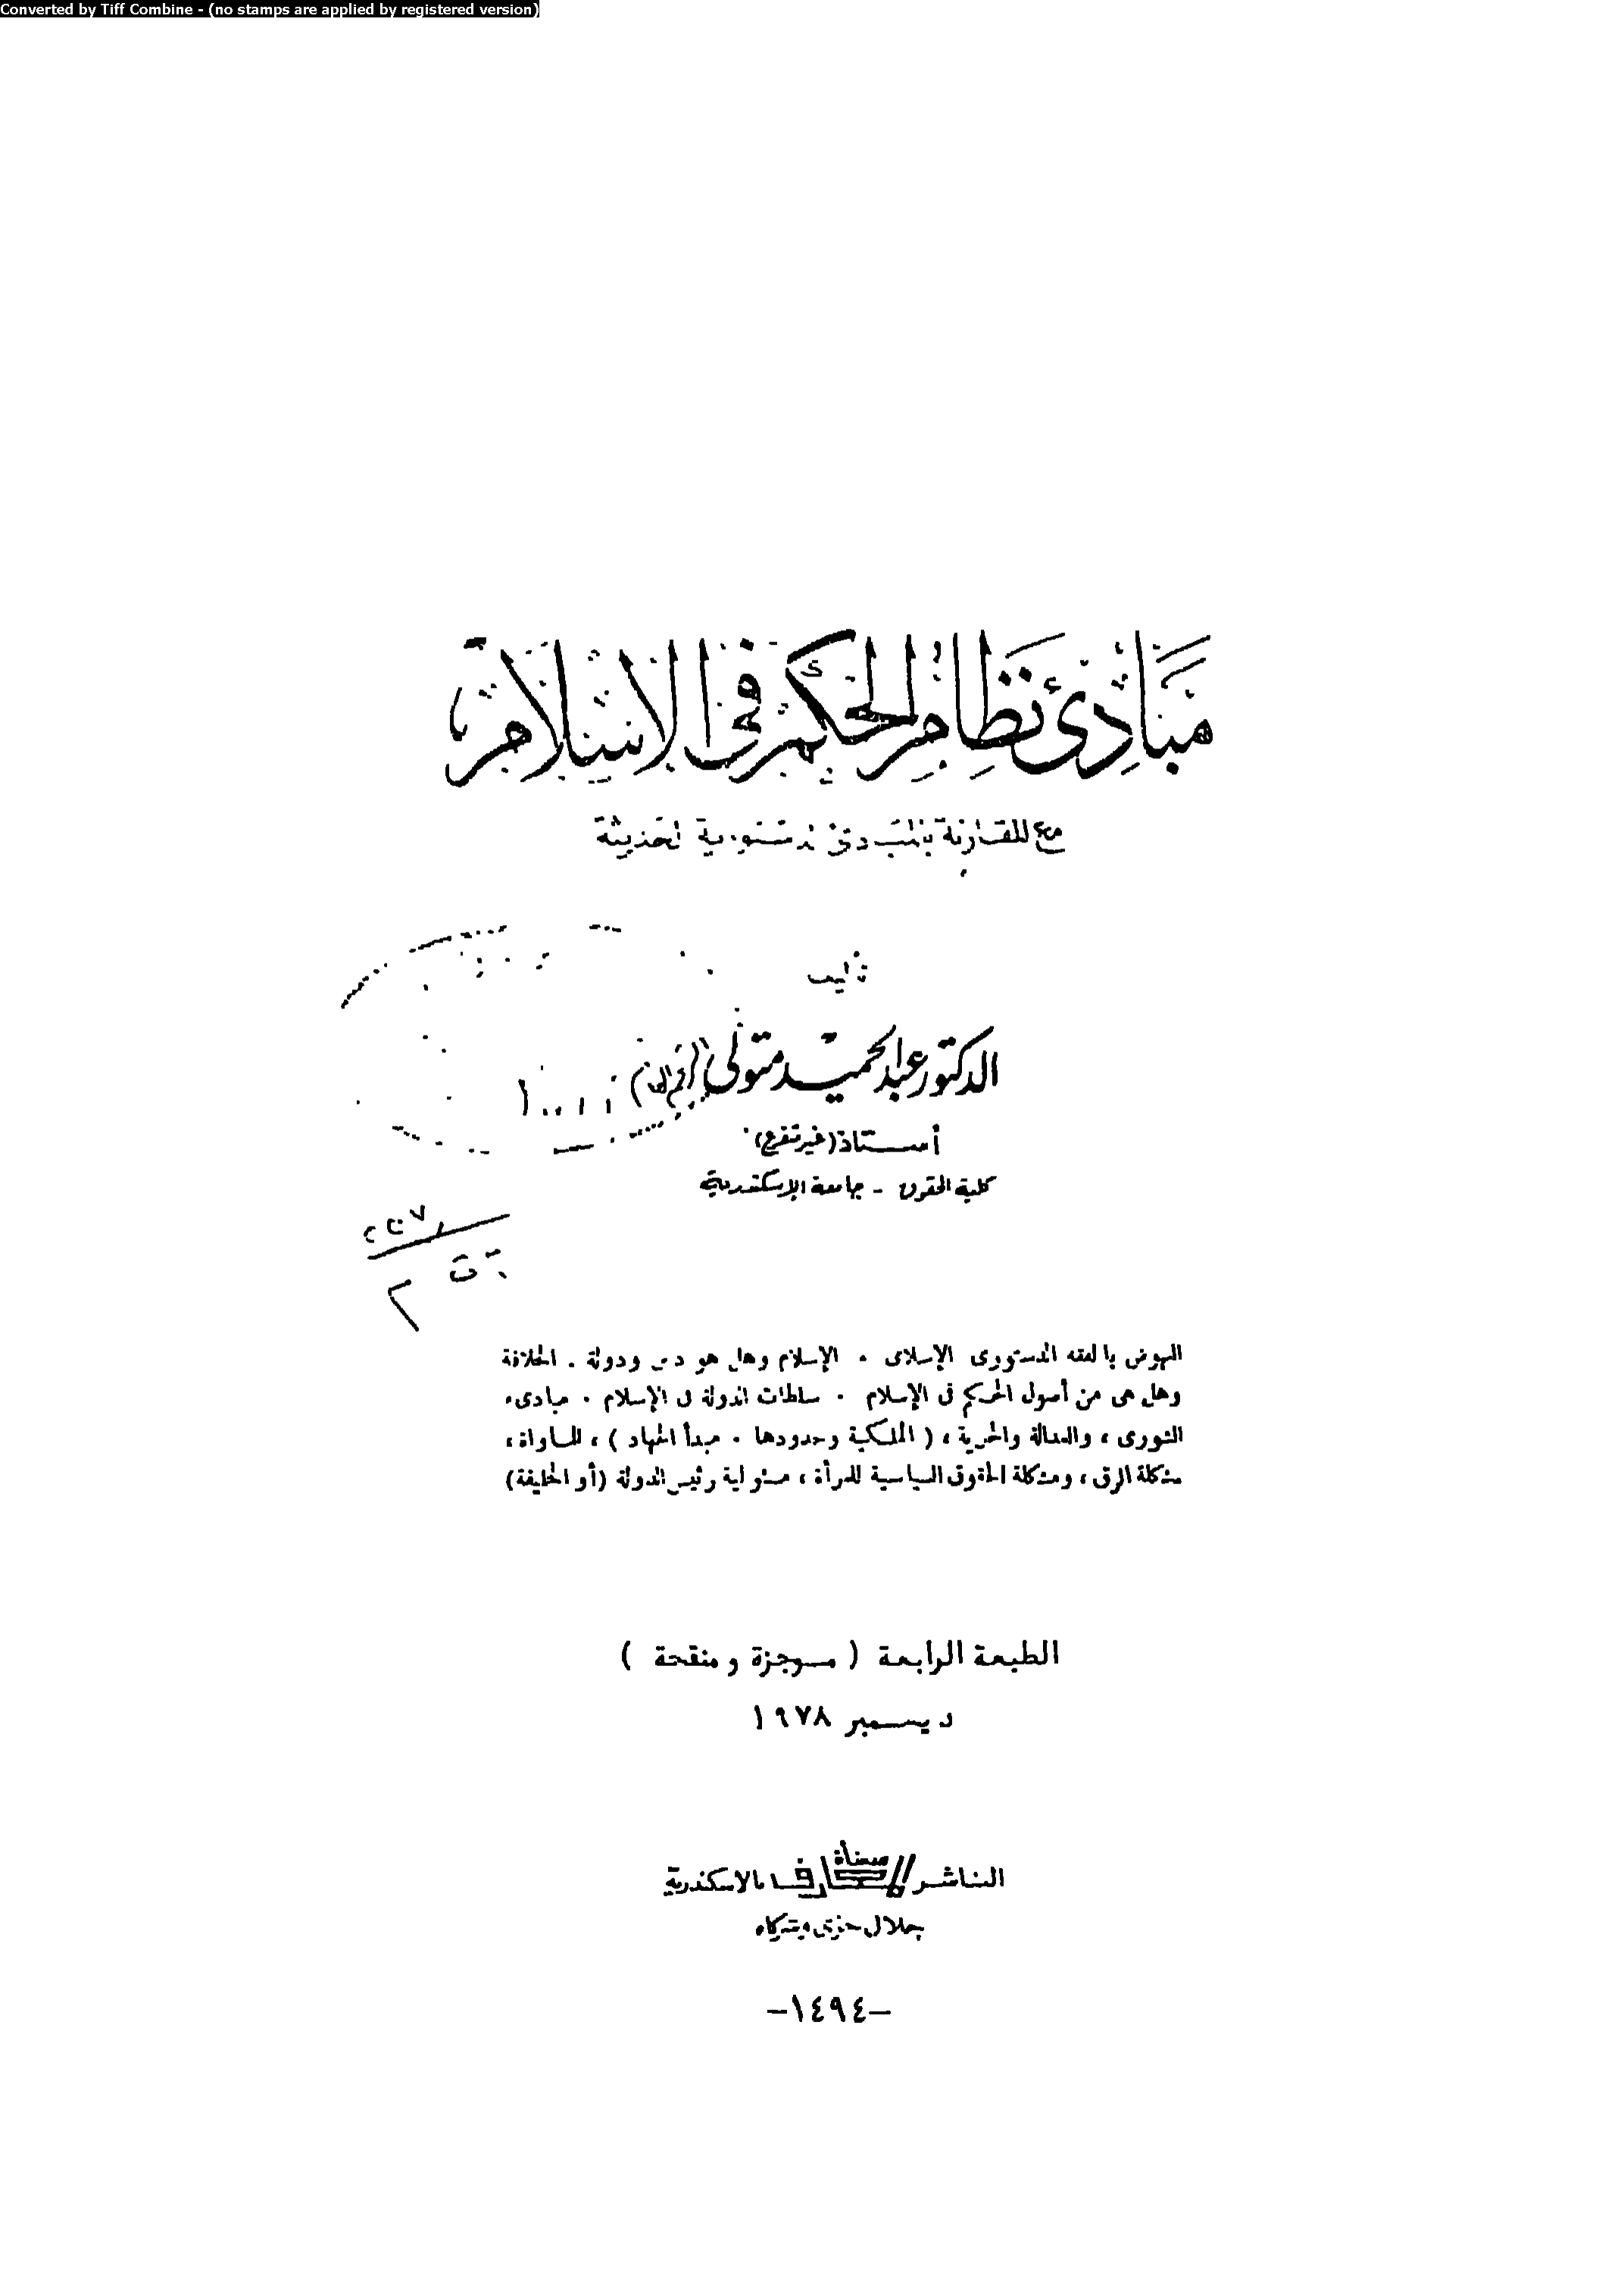 Converted by Tiff Combine - (no stamps are applied by registered version)
مبادئ نظام الحكم في الإسلام
مع المقارنة بالمبادئ الدستورية الحديثة
تأليف
الدكتور عبد الحميد متولى
أستاذ (غير متفرغ)
كلية الحقوق - جامعة الإسكندرية
النهوض بالفقه الدستورى الإسلامى . الإسلام وهل هو دين ودولة . الخلافة
وهل هى من أصول الحكم فى الإسلام . سلطات الدولة فى الإسلام . مبادىء
الشورى ، والعدالة والحرية ، ( الملكية وحدودها . مبدأ الجهاد ) ، المساواة ،
مشكلة الرق ، ومشكلة الحقوق السياسية للمرأة ، مسئولية رئيس الدولة (أو الخليفة)
الطبعة الرابعة ( موجزة ومنقحة )
ديسمبر ١٩٧٨
الناشر منشأة المعارف بالاسكندرية
جلال حزى وشركاه
-١٤٩٤-